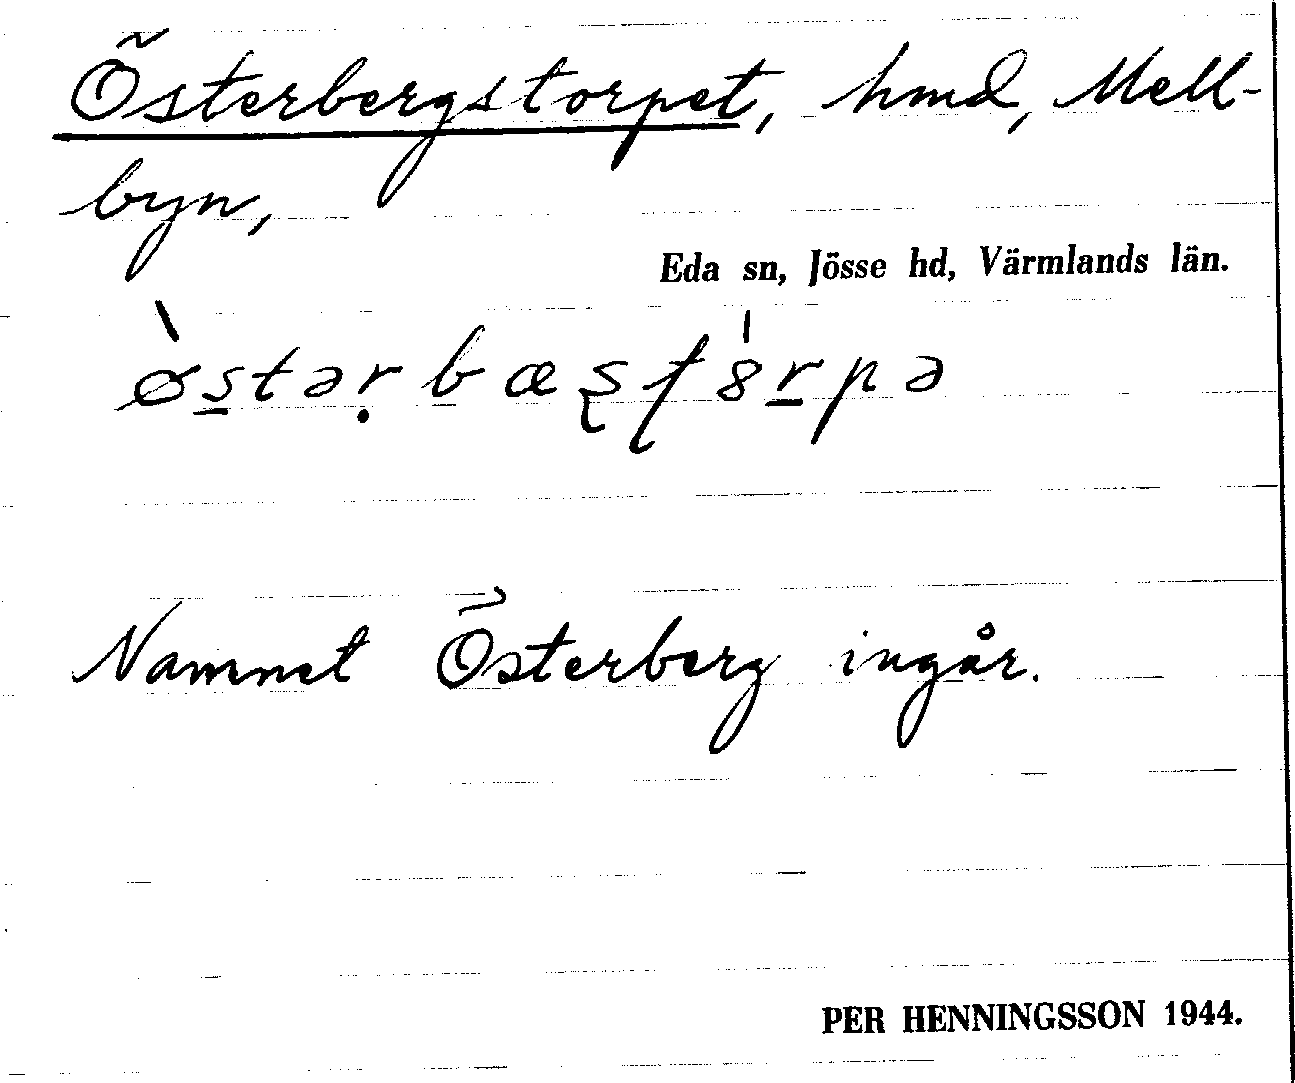 Österbergstorpet, hmd, Mell-
byn,
Eda sn, Jösse hd, Värmlands län.
ø̀s̲təṛbæʂʈ8́r̲pə
Namnet Österberg ingår.
PER HENNINGSSON 1944.